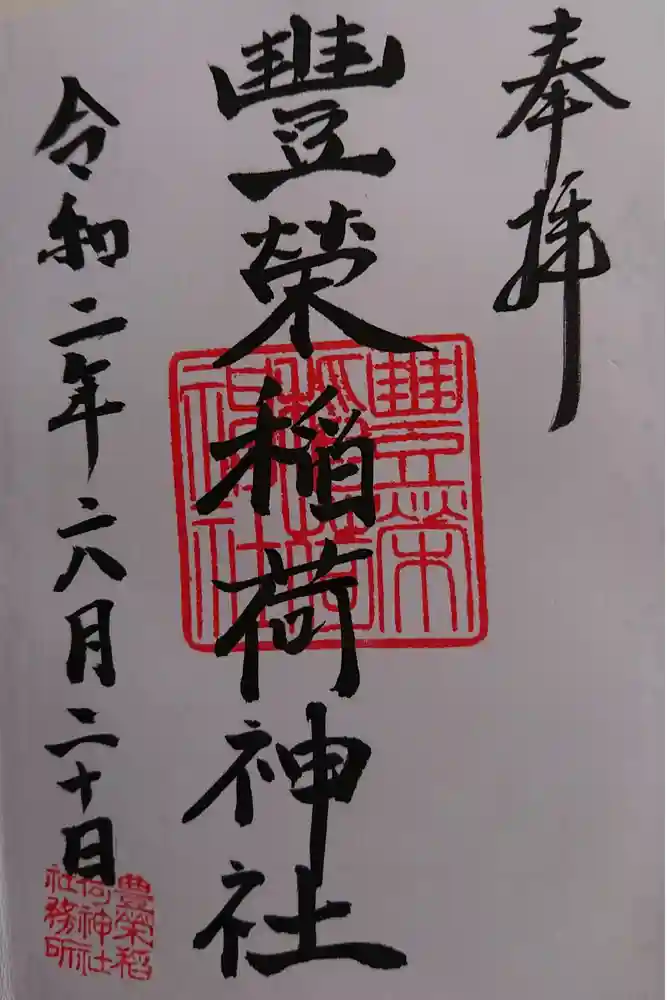 奉拝
豐榮稲荷神社
豐榮
稲荷
神社
令和二年六月二十日
豊榮稻
荷神社
社務所